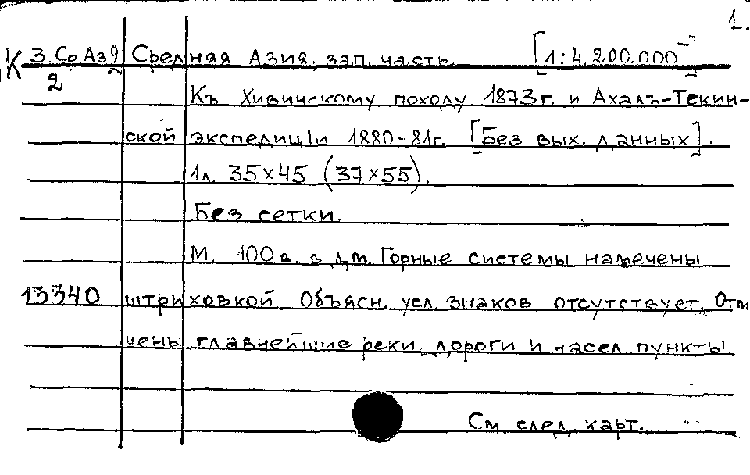 1.
К 3. Ср Аз 9 Средняя Азия, зап. часть. [1:4.200.000]
2
Къ Хивинскому походу 1873 г. и Ахалъ-Текин-
ской экспедицiи 1880-81 г. [Без вых. данных].
1 л. 35×45 (37×55).
Без сетки.
М. 100 в. в дм. Горные системы намечены
13340 штриховкой. Объясн. усл. знаков отсутствует. Отм
чены главнейшие реки, дороги и насел. пункты
См. след. карт.